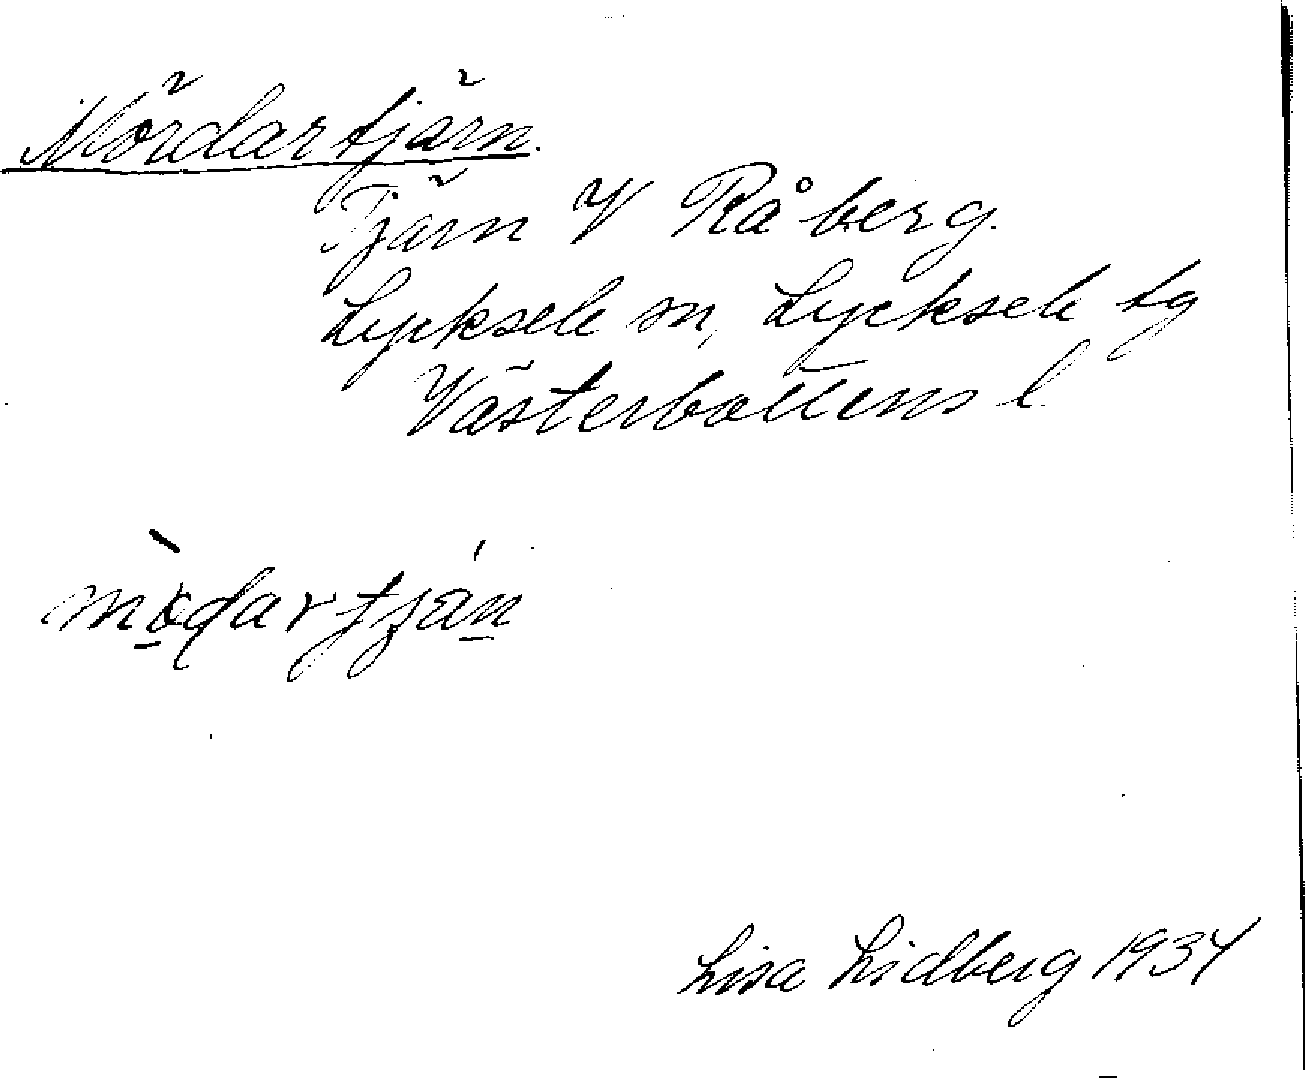 Mördartjärn.
Tjärn V Råberg.
Lycksele sn, Lycksele tg
Västerbottens l
Lisa Lidberg 1934